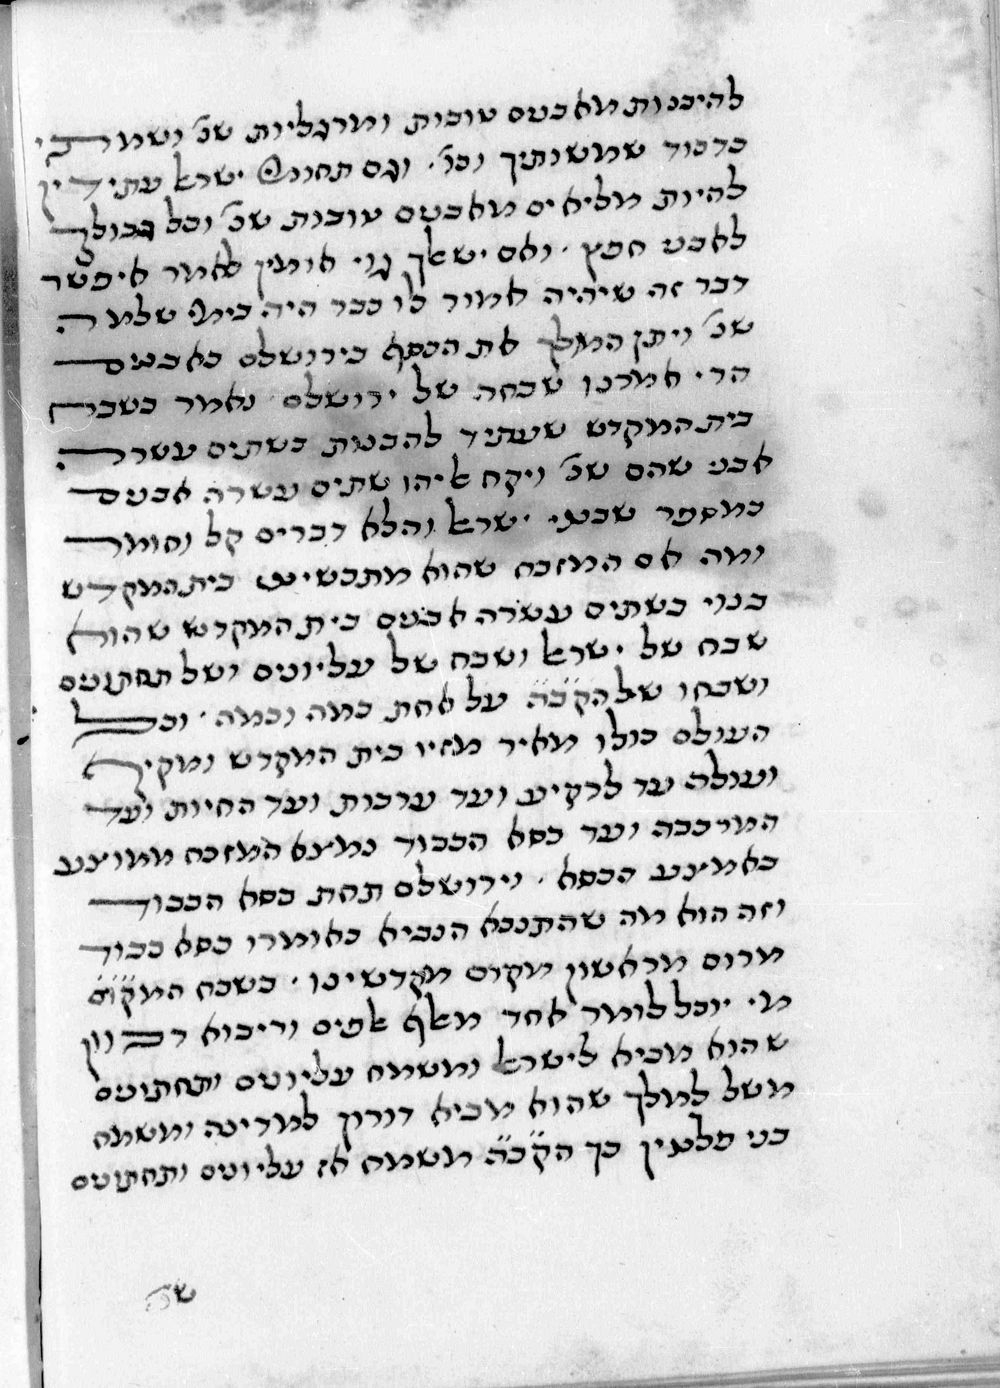 להיבנות מאבנים טובות ומרגליות שנ' ושמתי
כדכוד שמשותיך וכו'. וגם תחומי ישראל עתידין
להיות מליאים מאבנים טובות שנ' וכל גבולך
לאבני חפץ. ואם ישאלך גוי או מין לאמר איפשר
דבר זה שיהיה אמור לו כבר היה בימי שלמה
שנ' ויתן המלך את הכסף בירושלם כאבנים
הרי אמרנו שבחה של ירושלם נאמר בשבח
בית המקדש שעתיד להבנות בשתים עשרה
אבני שהם שנ' ויקח אליהו שתים עשרה אבנים
כמספר שבטי ישראל והלא דברים קל וחומר
ומה אם המזבח שהוא מתכשיטי בית המקדש
בנוי בשתים עשרה אבנים בית המקדש שהוא
שבח של ישראל ושבח של עליונים ושל תחתונים
ושבחו של הק"בה על אחת כמה וכמה. וכל
העולם כולו מאיר מזיו בית המקדש ומקיף
ועולה עד לרקיע ועד ערבות ועד החיות ועד
המרכבה ועד כסא הכבוד נמצא המזבח ממוצע
באמצע הכסא. וירושלם תחת כסא הכבוד
וזה הוא מה שהתנבא הנביא באומרו כסא כבוד
מרום מראשון מקום מקדשינו. בשבח המקום
מי יוכל לומר אחד מאלף אלפים וריבוא רבוון
שהוא מביא לישראל ומשמח עליונים ותחתונים
משל למלך שהוא מביא דורון למדינה ומשמח
בני פלטין כך הק"בה משמח אז עליונים ותחתונים